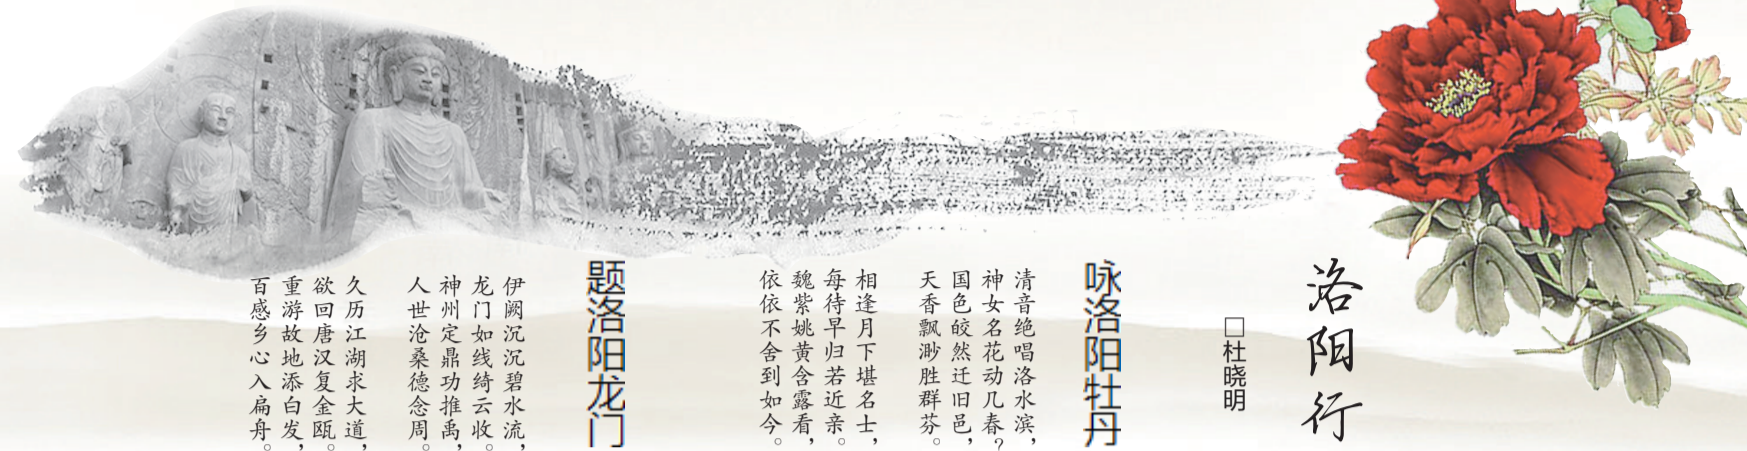 洛阳行
□杜晓明
咏洛阳牡丹
清音绝唱洛水滨，
神女名花动几春？
国色皎然迁旧邑，
天香飘渺胜群芬。
相逢月下堪名士，
每待早归若近亲。
魏紫姚黄含露看，
依依不舍到如今。
题洛阳龙门
伊阙沉沉碧水流，
龙门如线绮云收。
神州定鼎功推禹，
人世沧桑德念周。
久历江湖求大道，
欲回唐汉复金瓯。
重游故地添白发，
百感乡心入扁舟。